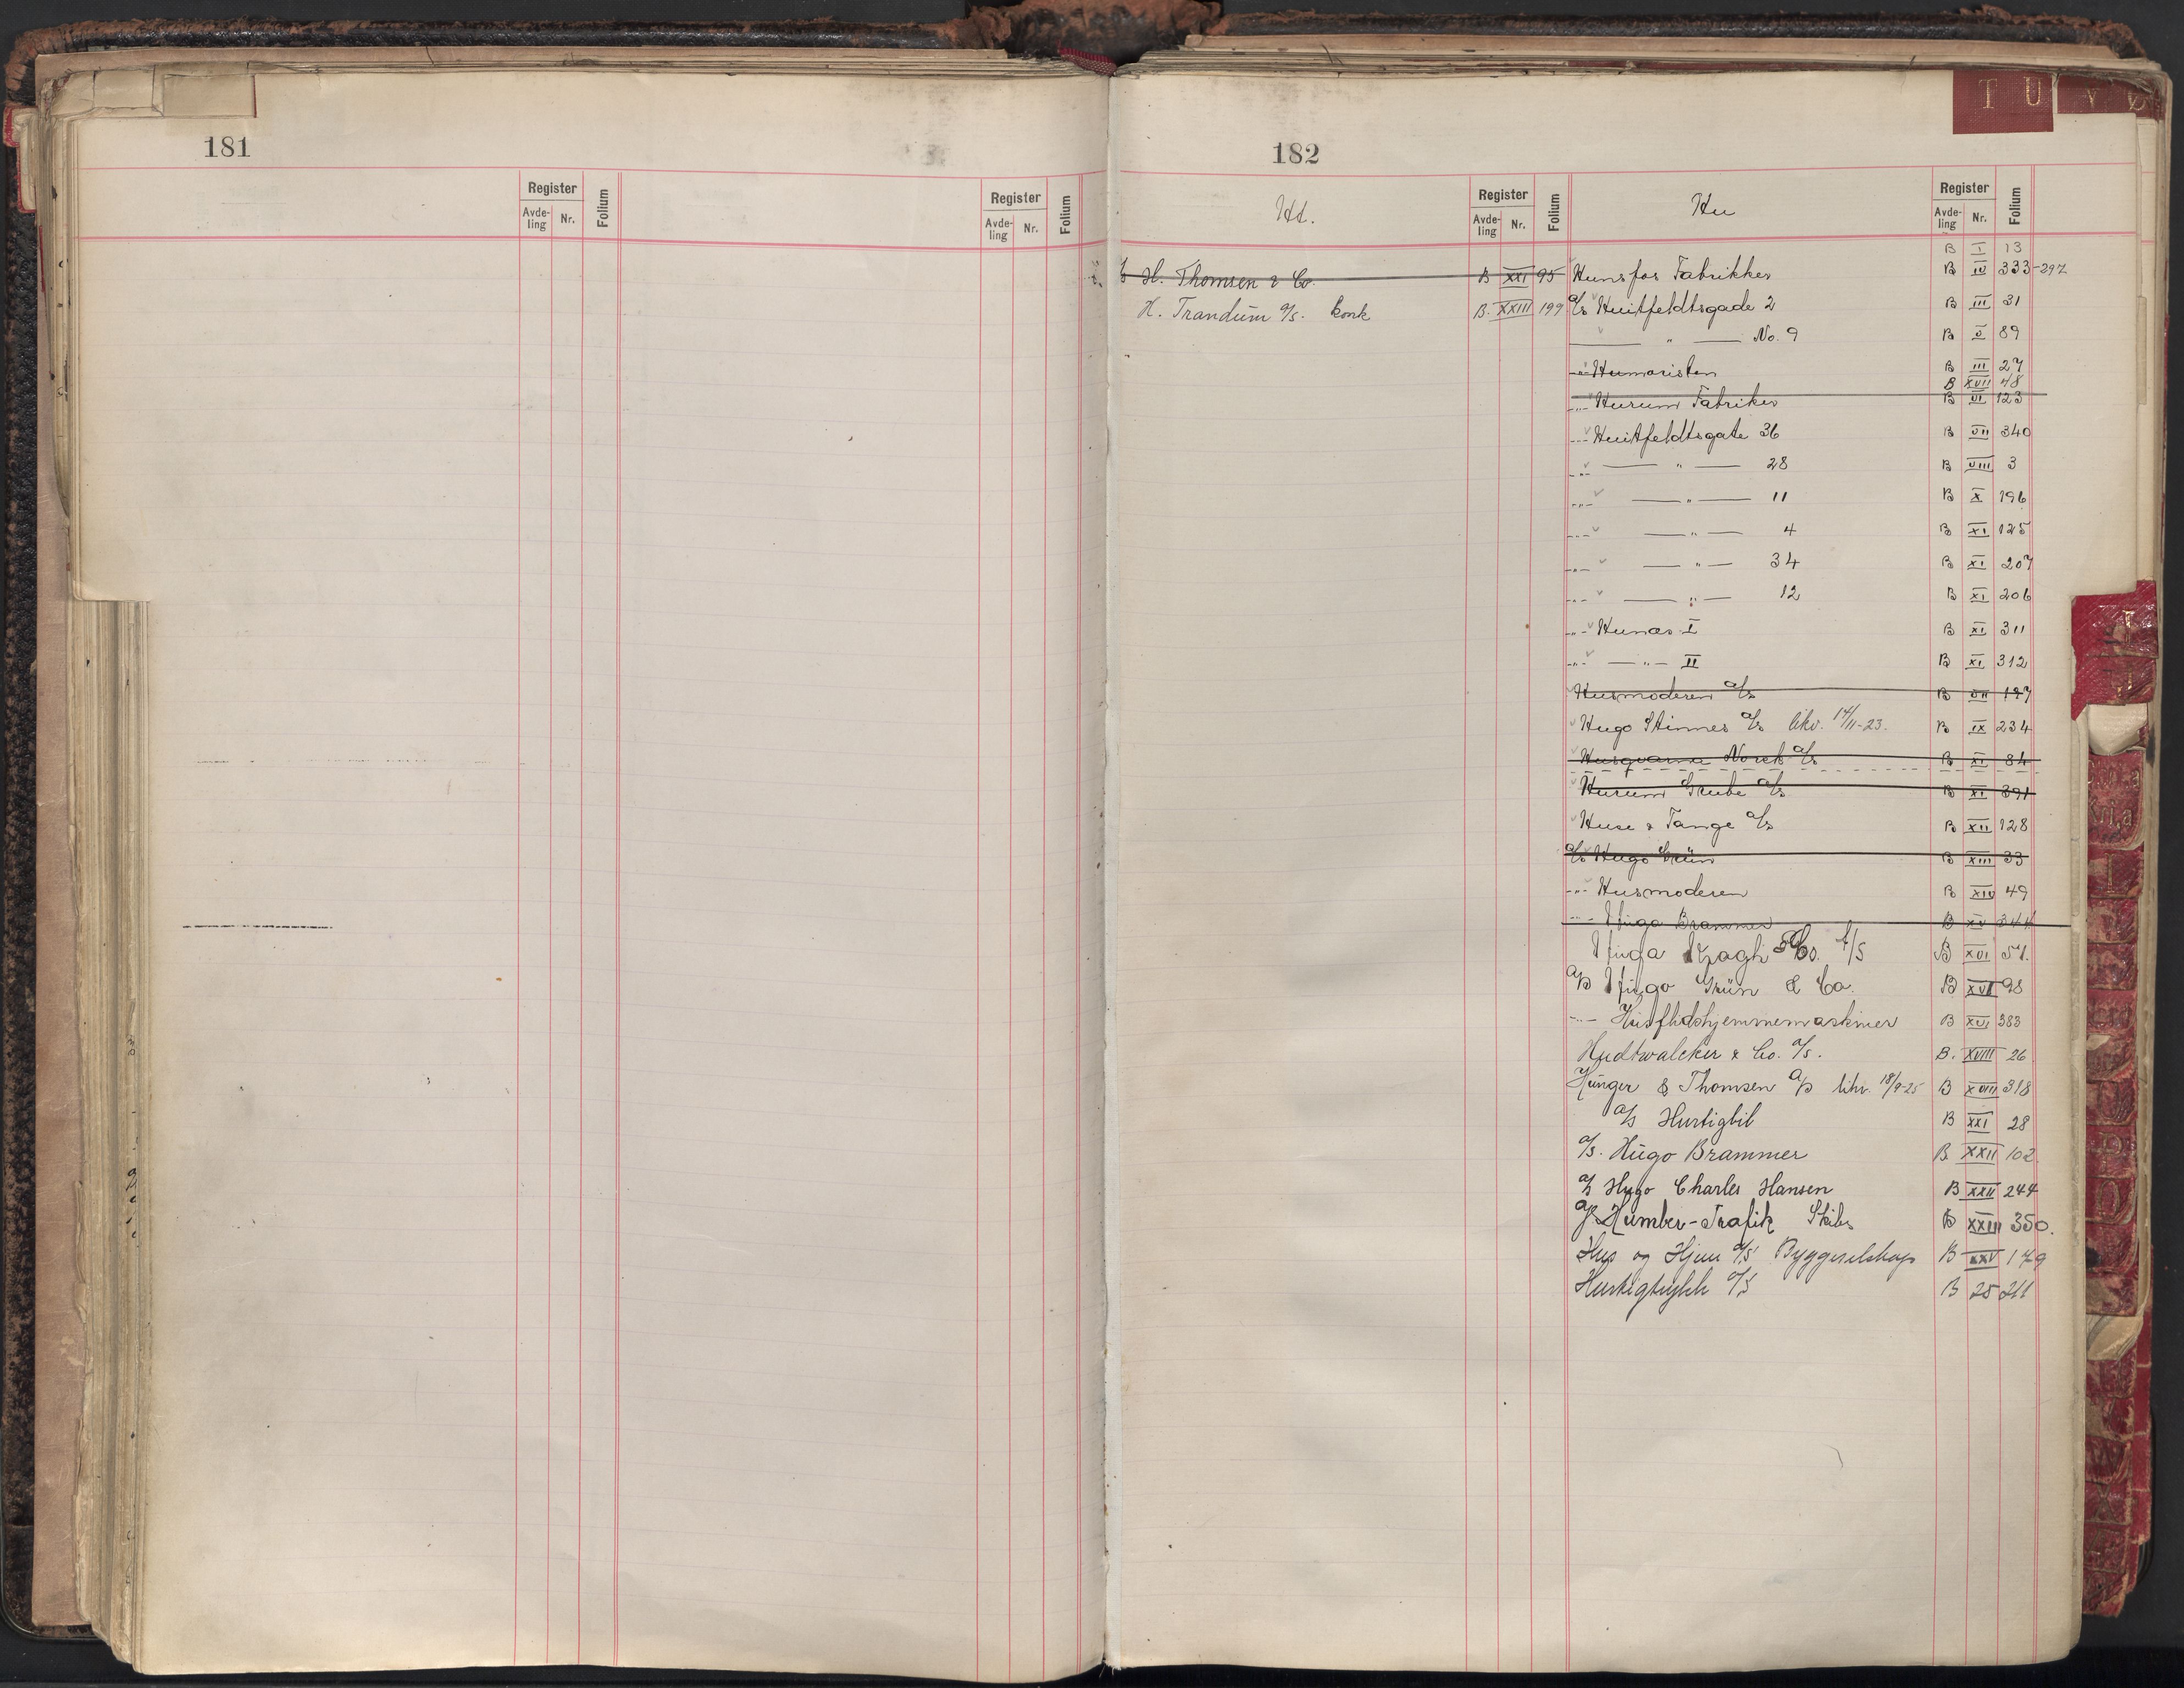 181
Register Folium Register Folium
Avde-ling Nr. Avde-ling Nr.
182
T U V Ø
Ht. Register Folium Hu Register Folium
Avde-ling Nr. Avde-ling Nr.
H. Thomsen & Co. B XXI 95
H. Trandum A/S. konk B. XXIII 199
B I 13
Hunsfos Fabrikker B IV 333-297
A/S Huitfeldtsgade 2 B III 31
— " — No. 9 B V 89
-"- Humoristen B III 27
B XVII 48
-"- Hurum Fabriker B VI 123
-"- Huitfeldtsgate 36 B VII 340
-"- — " — 28 B VIII 3
-"- — " — 11 B X 196
-"- — " — 4 B XI 125
-"- — " — 34 B XI 207
-"- — " — 12 B XI 206
-"- Hunas I B XI 311
-"- — " — II B XI 312
Husmoderen A/S B VII 197
Hugo Stinnes A/S likv. 14/11-23. B IX 234
Husqvarna Norsk A/S B XI 84
Hurum Grube A/S B XI 391
Huse & Tange A/S B XII 128
A/S Hugo Grün B XIII 33
-"- Husmoderen B XIV 49
-"- Hugo Brammer B XV 344
Hugo Kragh & Co. A/S B XVI 57.
A/S Hugo Grün & Co. B XVI 98
-"- Husflidshjemmemaskiner B XVI 383
Hudtwalcker & Co. A/S. B. XVIII 26
Hunger & Thomsen A/S likv. 18/9-25 B XVIII 318
A/S Hurtigbil B XXI 28
A/S. Hugo Brammer B. XXII 102.
A/S Hugo Charles Hansen B XXII 244
A/S Humber-Trafik Skibs B XXIII 350.
Hus og Hjem A/S Byggeselskap B XXV 179
Hurtigtrykk A/S B 25 211